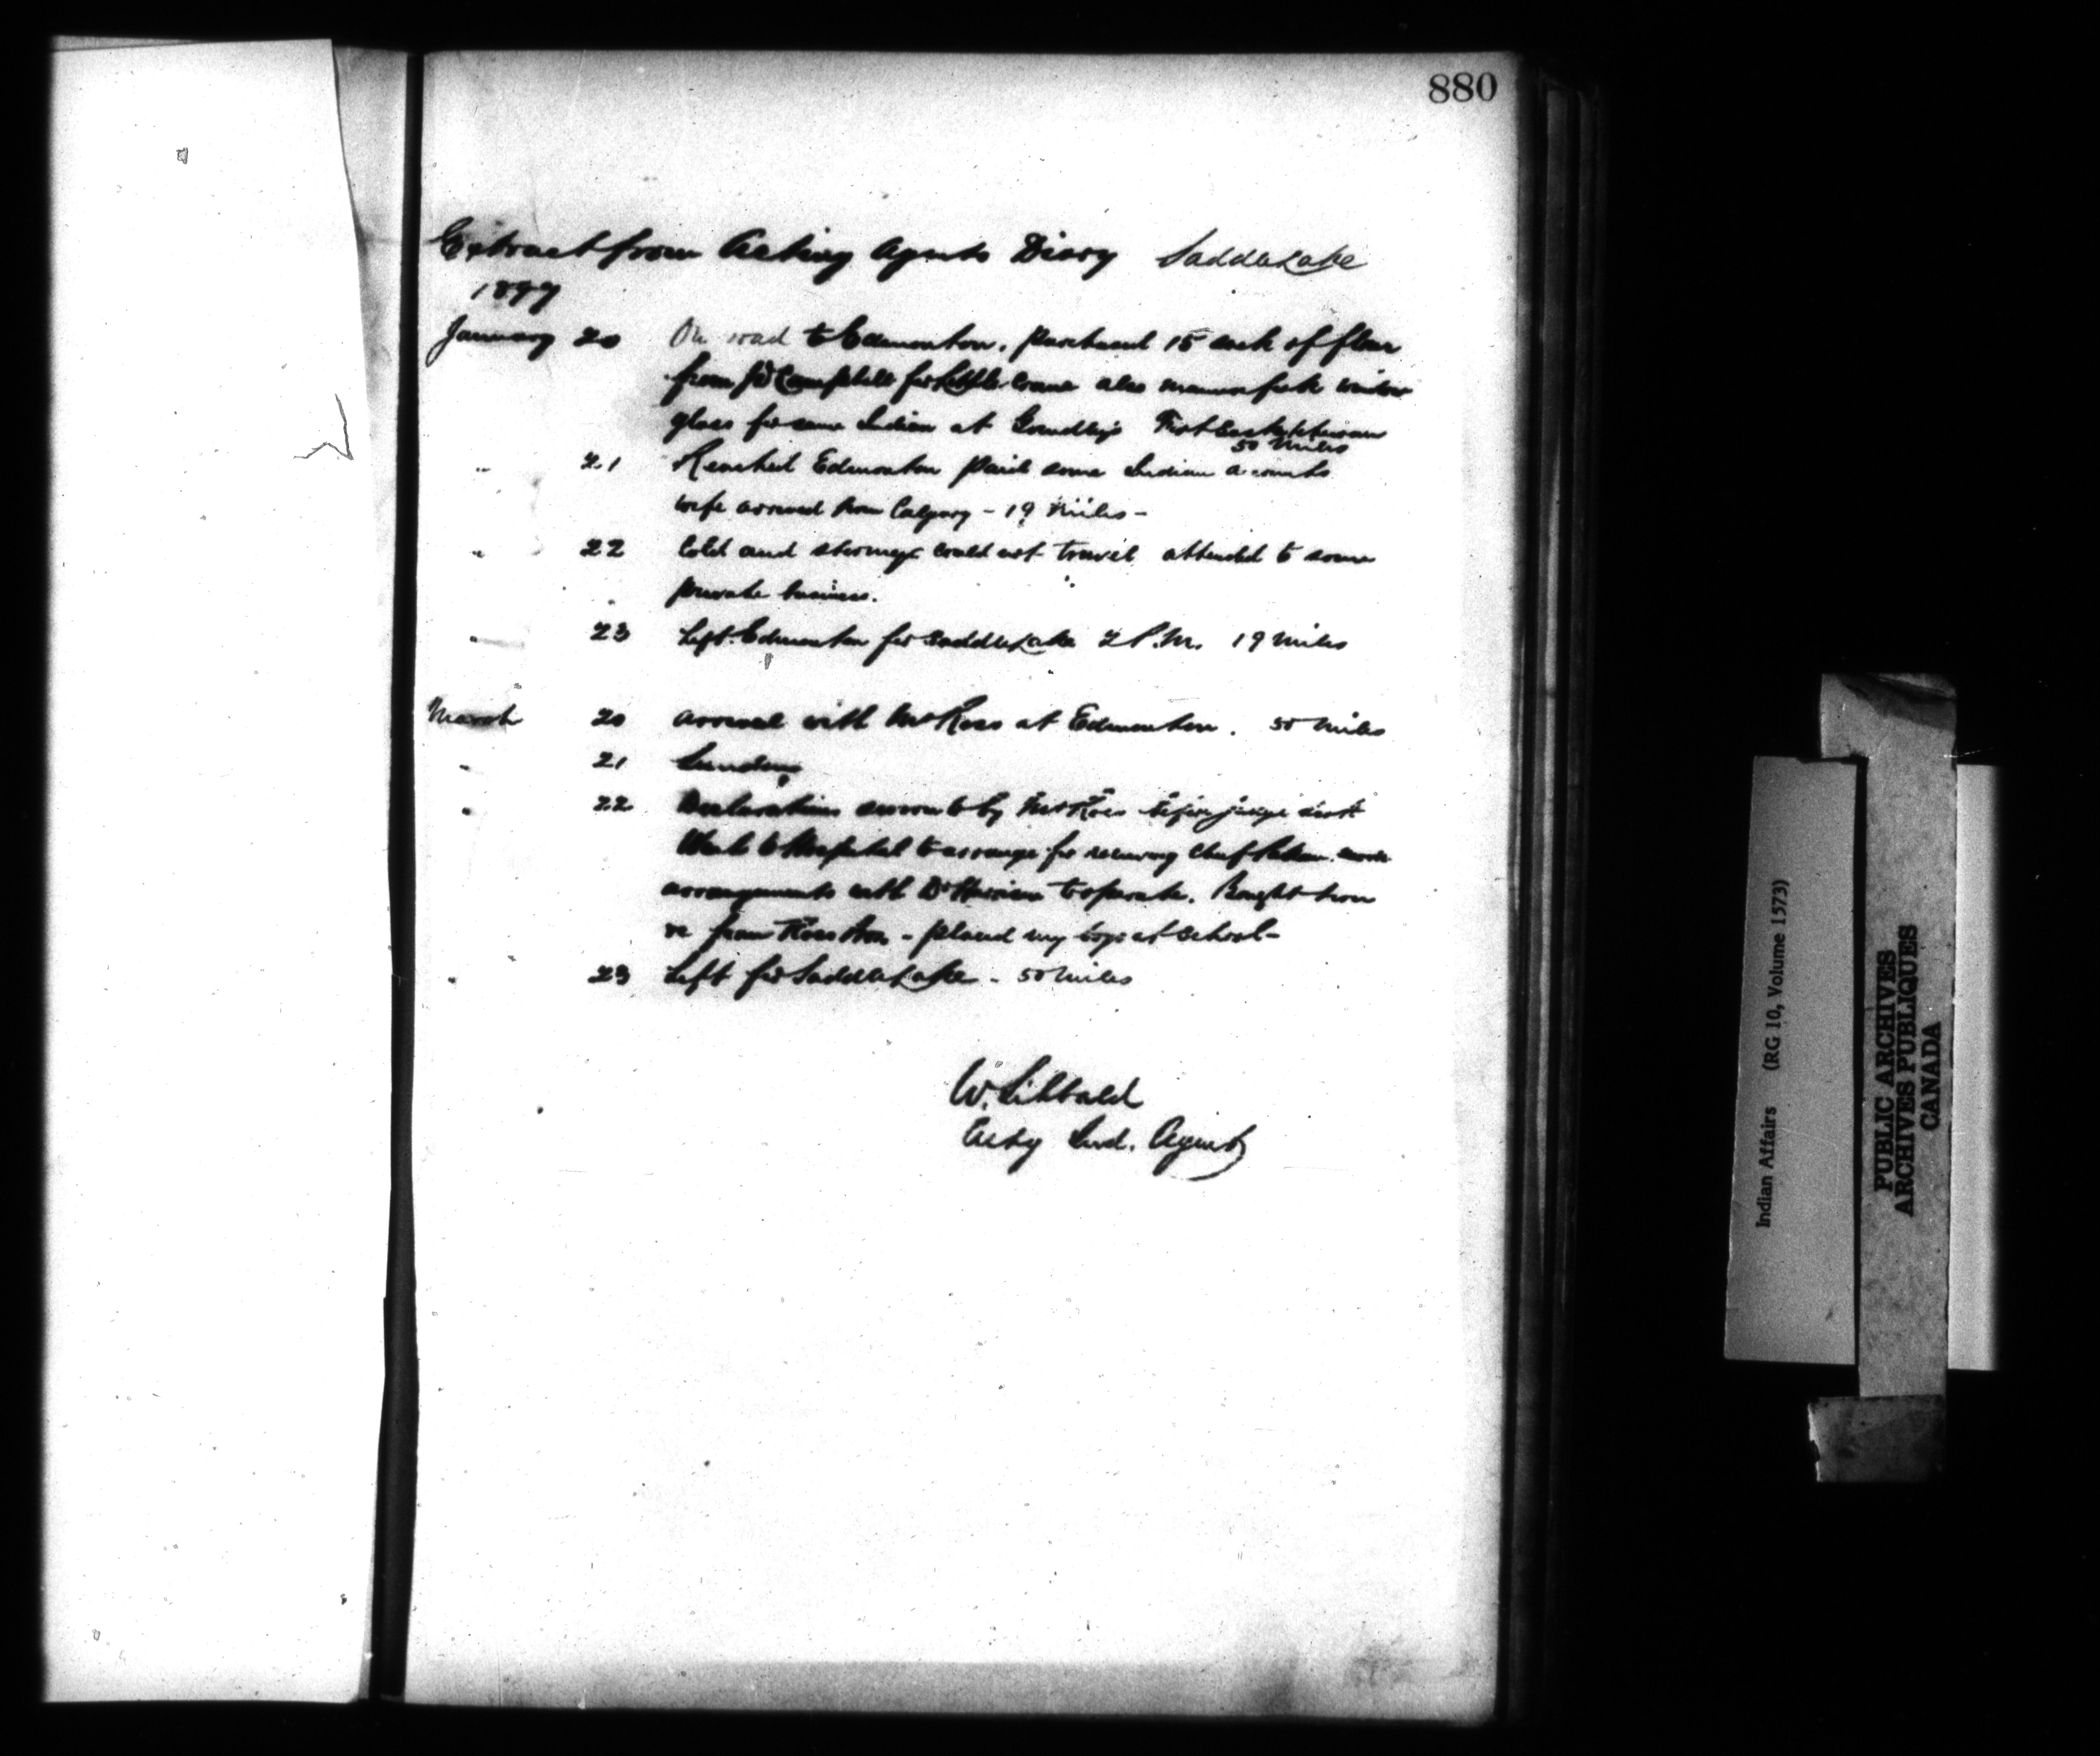 880
Extract from Acting Agents Diary Saddle Lake
1897
January 20 On road to Edmonton. Purchased 15 sack of flour
from Campbell for also window
glass for some Indian at Fort Saskatchewan
50 Miles
" 21 Reached Edmonton paid some Indian accounts
wife arrived from Calgary - 19 Miles -
" 22 Cold and stormy could not travel attended to some
private business.
" 23 Left Edmonton for Saddle Lake 2 P.M. 19 Miles
March 20 arrived with Mr Ross at Edmonton. 50 Miles
" 21 Sunday
" 22 Declarations sworn to by Mr Ross before judge
Went to Hospital to arrange for receiving Chief made
arrangements with Dr Harrison to operate. Bought iron
&c from Ross Bros - placed my boys at School -
" 23 Left for Saddle Lake - 50 Miles
W. Sibbald
Actg Ind. Agent
Indian Affairs (RG 10, Volume 1573)
PUBLIC ARCHIVES
ARCHIVES PUBLIQUES
CANADA